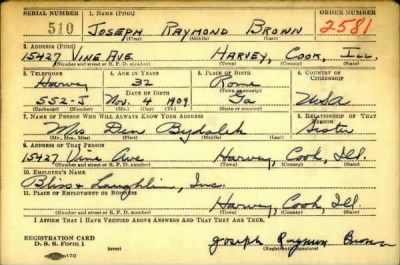 SERIAL NUMBER 1. NAME (Print) ORDER NUMBER
510 JOSEPH RAYMOND BROWN 2581
(First) (Middle) (Last)
2. ADDRESS (Print)
15427 VINE AVE. HARVEY, COOK, ILL.
(Number and street or R. F. D. number) (Town) (County) (State)
3. TELEPHONE 4. AGE IN YEARS 5. PLACE OF BIRTH 6. COUNTRY OF CITIZENSHIP
Harvey 32 Rome
DATE OF BIRTH (Town or county)
552-J Nov. 4 1909 Ga USA
(Mo.) (Day) (Yr.) (State or country)
7. NAME OF PERSON WHO WILL ALWAYS KNOW YOUR ADDRESS 8. RELATIONSHIP OF THAT PERSON
Mrs Ben Sister
(Mr., Mrs., Miss) (First) (Middle) (Last)
9. ADDRESS OF THAT PERSON
15427 Vine Ave Harvey, Cook, Ill.
(Number and street or R. F. D. number) (Town) (County) (State)
10. EMPLOYER'S NAME
Bliss & Laughlin, Inc.
11. PLACE OF EMPLOYMENT OR BUSINESS
Harvey, Cook, Ill
(Number and street or R. F. D. number) (Town) (County) (State)
I AFFIRM THAT I HAVE VERIFIED ABOVE ANSWERS AND THAT THEY ARE TRUE.
REGISTRATION CARD
D. S. S. Form 1 (over) Joseph Raymond Brown
(Registrant's signature)